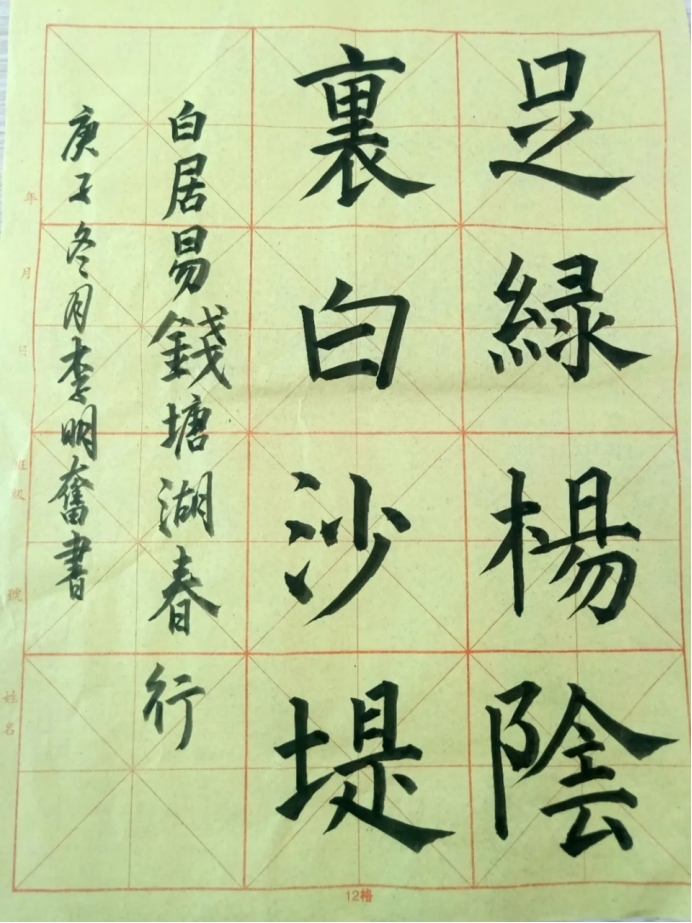 足綠楊陰
裏白沙堤
白居易錢塘湖春行
庚子冬月李明奮書
年
月
日
班級
號
姓名
12格